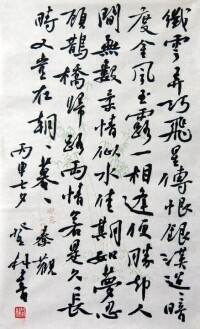 纖雲弄巧飛星傳恨銀漢迢迢暗
度金風玉露一相逢便勝却人
間無數柔情似水佳期如夢忍
顧鵲橋歸路兩情若是久長
時又豈在朝、暮、秦觀
丙申七夕
登林書